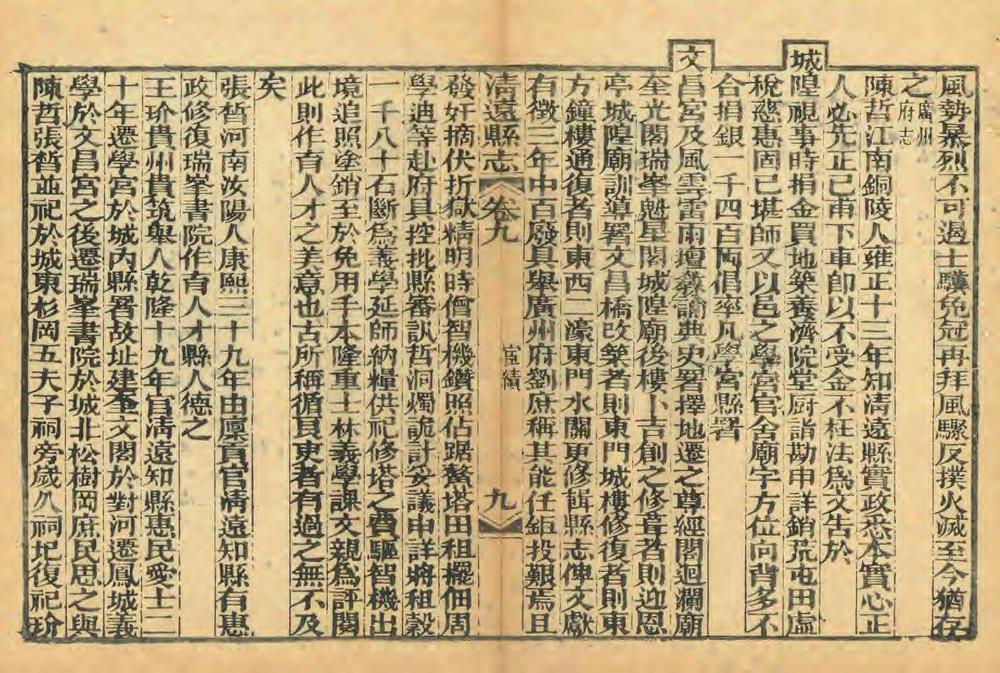 風勢暴烈不可遏士驥免冠再拜風驟反撲火滅至今猶存
之廣州府志
陳哲江南銅陵人雍正十三年知清遠縣實政悉本實心正
人必先正己甫下車即以不受金不枉法爲文告於
城隍視事時捐金買地築養濟院堂厨詣勘申詳銷荒屯田虛
稅慈惠固已堪師又以邑之學宮官舍廟宇方位向背多不
合捐銀一千四百兩倡率凡學宮縣署
文昌宮及風雲雷雨壇義諭典史署擇地遷之尊經閣迴瀾廟
奎光閣瑞峯魁星閣城隍廟後樓卜吉創之修葺者則迎恩
亭城隍廟訓導署文昌橋改築者則東門城樓修復者則東
方鐘樓通復者則東西二濠東門水關更修輯縣志俾文獻
有徵三年中百廢具舉廣州府劉庶稱其能任鉅投艱焉且
清遠縣志 卷九 宦績 九
發奸摘伏折獄精明時僧智機鑽照佔踞鰲塔田租擺佃周
學迪等赴府具控批縣審訊哲洞燭詭計妥議申詳將租穀
一千八十石斷爲義學延師納糧供祀修塔之費驅智機出
境追照塗銷至於免用手本隆重士林義學課文親爲評閱
此則作育人才之美意也古所稱循良吏者有過之無不及
矣
張皙河南汝陽人康熙三十九年由廩貢官清遠知縣有惠
政修復瑞峯書院作育人才縣人德之
王玠貴州貴筑舉人乾隆十九年官清遠知縣惠民愛士二
十年遷學宮於城內縣署故址建奎文閣於對河遷鳳城義
學於文昌宮之後遷瑞峯書院於城北松樹岡庶民思之與
陳哲張皙並祀於城東杉岡五夫子祠旁歲久祠圮復祀玠